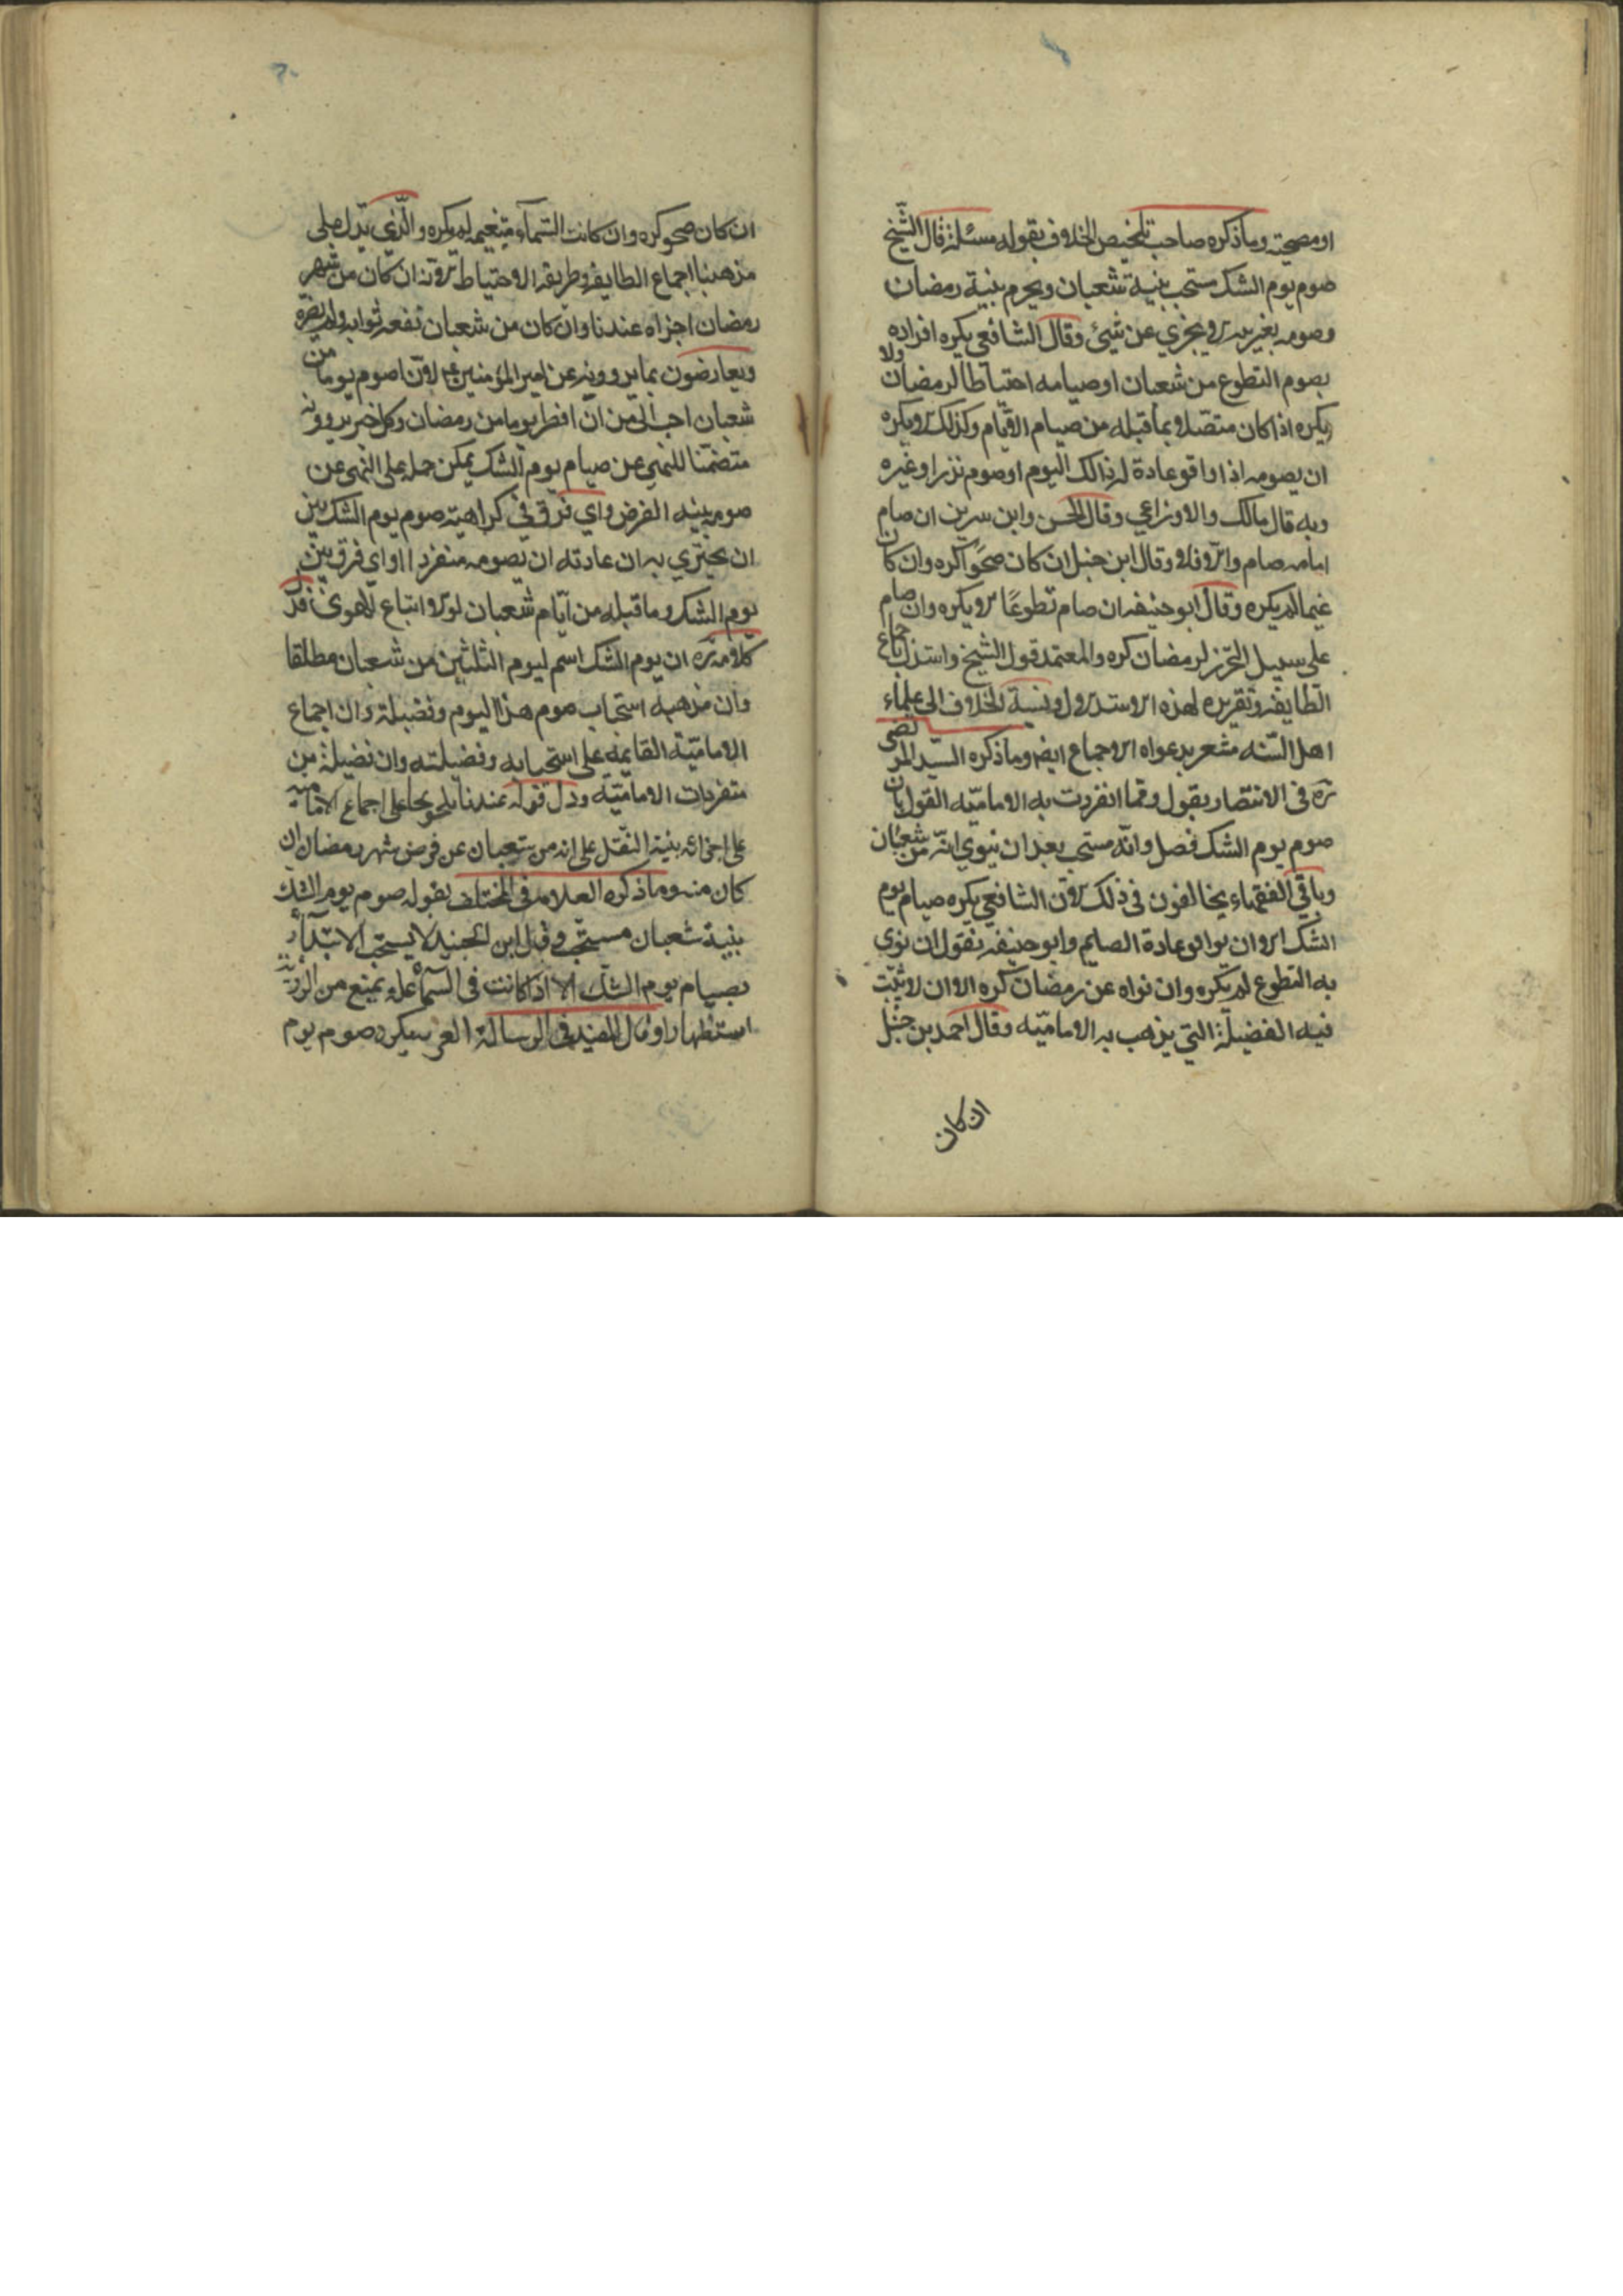 او مصحية وما ذكره صاحب تلخيص الخلاف بقوله مسئلة قال الشيخ
صوم يوم الشك مستحب بنية شعبان ويحرم بنية رمضان
وصومه بغير نية لا يجزي عن شيئ وقال الشافعي يكره افراده
بصوم التطوع من شعبان او صيامه احتياطا لرمضان ولا
يكره اذا كان متصلا بما قبله من صيام الايام وكذلك لا يكره
ان يصومه اذا وافق عادة له ذالك اليوم او صوم نذر او غيره
وبه قال مالك والاوزاعي وقال الحسن وابن سرين ان صام
امامه صام والا فلا وقال ابن حنبل ان كان صحوا كره وان كان
غيما لم يكره وقال ابو حنيفه ان صام تطوعا لا يكره وان صام
على سبيل التحرز لرمضان كره والمعتمد قول الشيخ واستدل باجماع
الطايفه وتقريره لهذه الاستدلال ونسبة الخلاف الى علماء
اهل السنه مشعر بدعواه الاجماع ايضا وما ذكره السيد المرتضى
ره في الانتصار بقول ومما انفردت به الاماميه القول بان
صوم يوم الشك فصل وانه مستحب بعد ان ينوي انه من شعبان
وباقي الفقهاء يخالفون في ذلك لان الشافعي يكره صيام يوم
الشك الا ان يوافق عادة الصايم وابو حنيفه يقول ان نوى
به التطوع لم يكره وان نواه عن رمضان كره الا ان لا يثبت
فيه الفضيلة التي يذهب به الاماميه وقال احمد بن حنبل
ان كان
ان كان صحو كره وان كانت السمآء متغيمه لم يكره والذي يدل على
مذهبنا اجماع الطايفه وطريقه الاحتياط لانه ان كان من شهر
رمضان اجزاه عندنا وان كان من شعبان نفعه ثوابه ولم يضره
ويعارضون بما يروونه عن امير المؤمنين ع لان اصوم يوما من
شعبان احب الى من ان افطر يوما من رمضان وكل خبر يروونه
متضمنا للنهي عن صيام يوم الشك يمكن حمله على النهى عن
صومه بنيه الفرض واي فرق في كراهية صوم يوم الشك بين
ان يجتزي به ان عادته ان يصومه منفردا او اي فرق بين
يوم الشك وما قبله من آيام شعبان لولا اتباع الاهوى فدل
كلامه ره ان يوم الشك اسم ليوم الثلثين من شعبان مطلقا
وان مذهبه استحباب صوم هذا اليوم وفضيلة وان اجماع
الاماميه القايمه على استحبابه وفضيلته وان فضيلة من
متفردات الاماميه ودل قوله عندنا تلويحا على اجماع الاماميه
على اجزائه بنية النفل على انه من شعبان عن فرض شهر رمضان ان
كان منه وما ذكره العلامه في المختلف بقوله صوم يوم الشك
بنية شعبان مستحب وقال ابن الجنيد لا يستحب الابتدآء
بصيام يوم الشك الا اذا كانت في السمآء علة يمنع من الرؤية
استظهارا وقال المفيد في الرسالة الغريه يكره صوم يوم